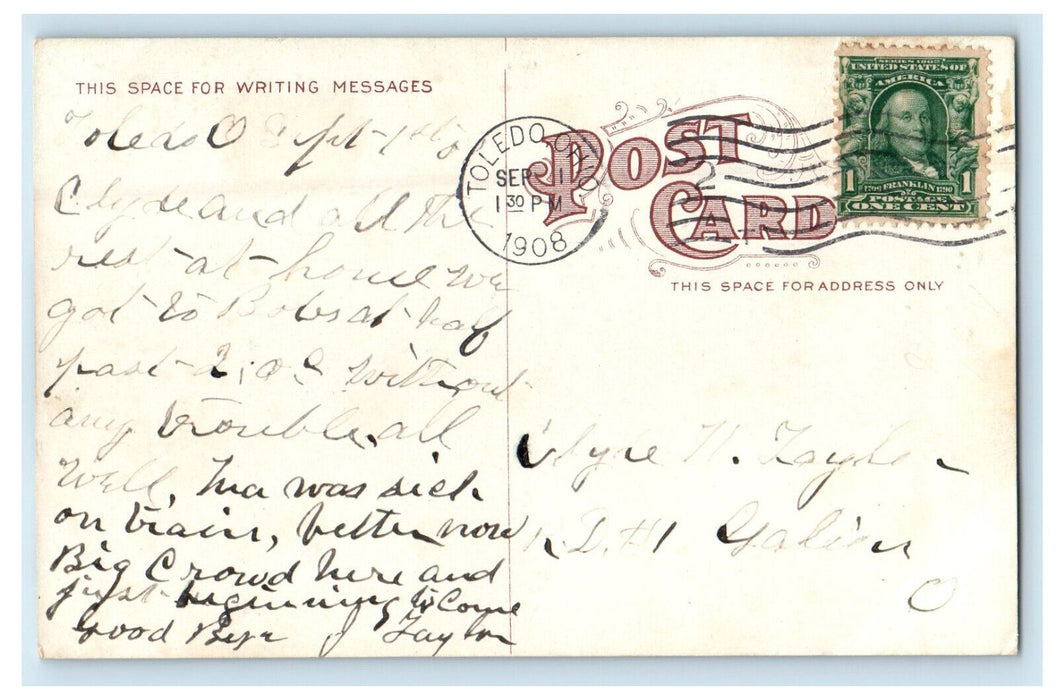 THIS SPACE FOR WRITING MESSAGES
Toledo O Sept 1st
Clyde and all the
rest at home we
got to Bobs at half
past 2,0 without
any trouble, all
Well, Ma was sick
on train, better now
Big Crowd here and
just beginning to Come
Good Bye J Taylor
TOLEDO, OHIO
SEP 1
1 30 PM
1908
POST
CARD
SERIES 1902
UNITED STATES OF
AMERICA
1 1
1706 FRANKLIN 1790
POSTAGE
ONE CENT
THIS SPACE FOR ADDRESS ONLY
Clyde W. Taylor
R.D. #1 Galion
O